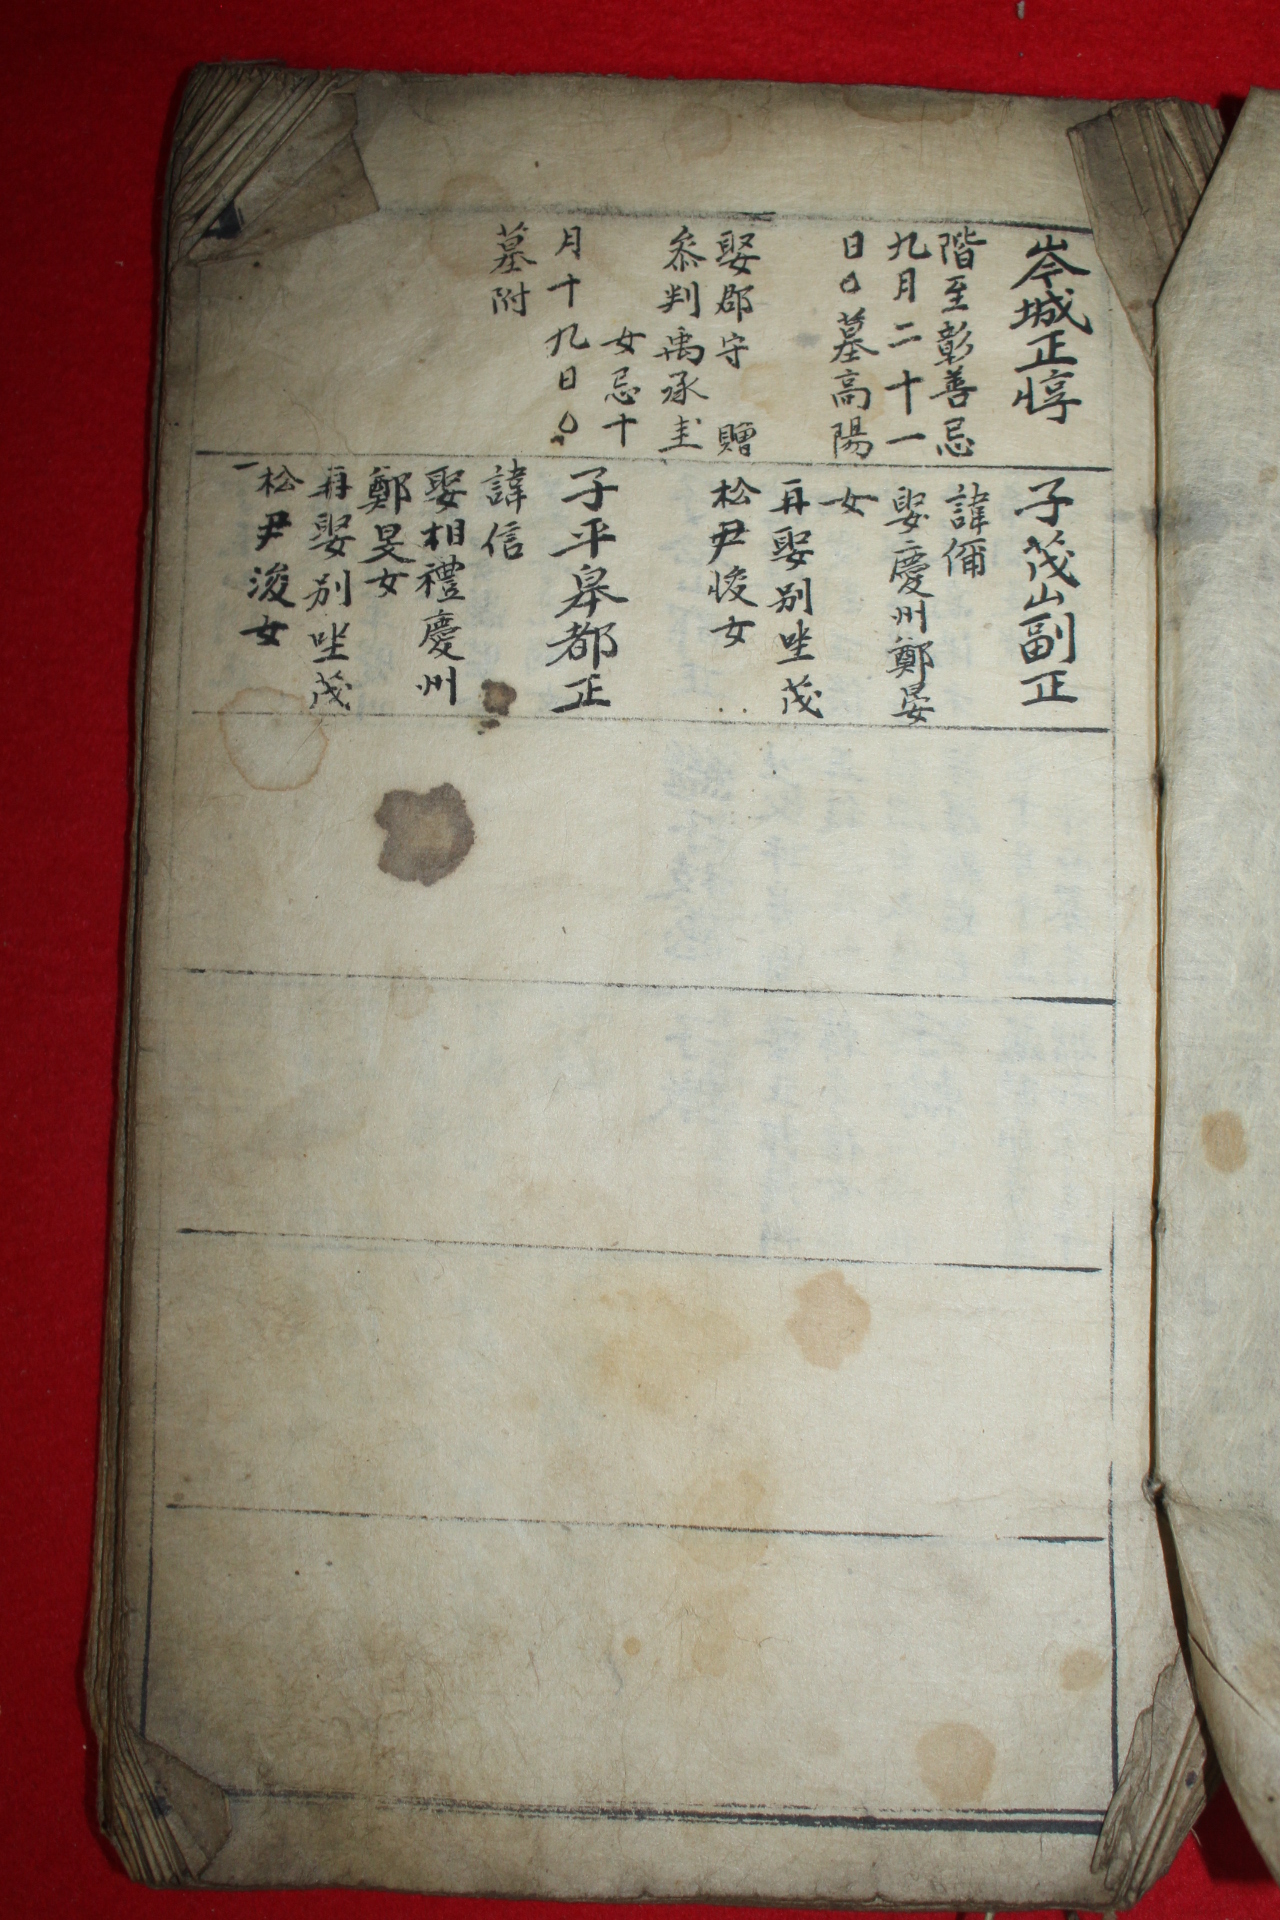 岑城正惇
階至彰善忌
九月二十一
日○墓高陽
娶郡守 贈
叅判禹承圭
女忌十
月十九日○
墓附
子茂山副正
諱儞
娶慶州鄭晏
女
再娶別坐茂
松尹悛女
子平皋都正
諱信
娶相禮慶州
鄭旻女
再娶別坐茂
松尹浚女